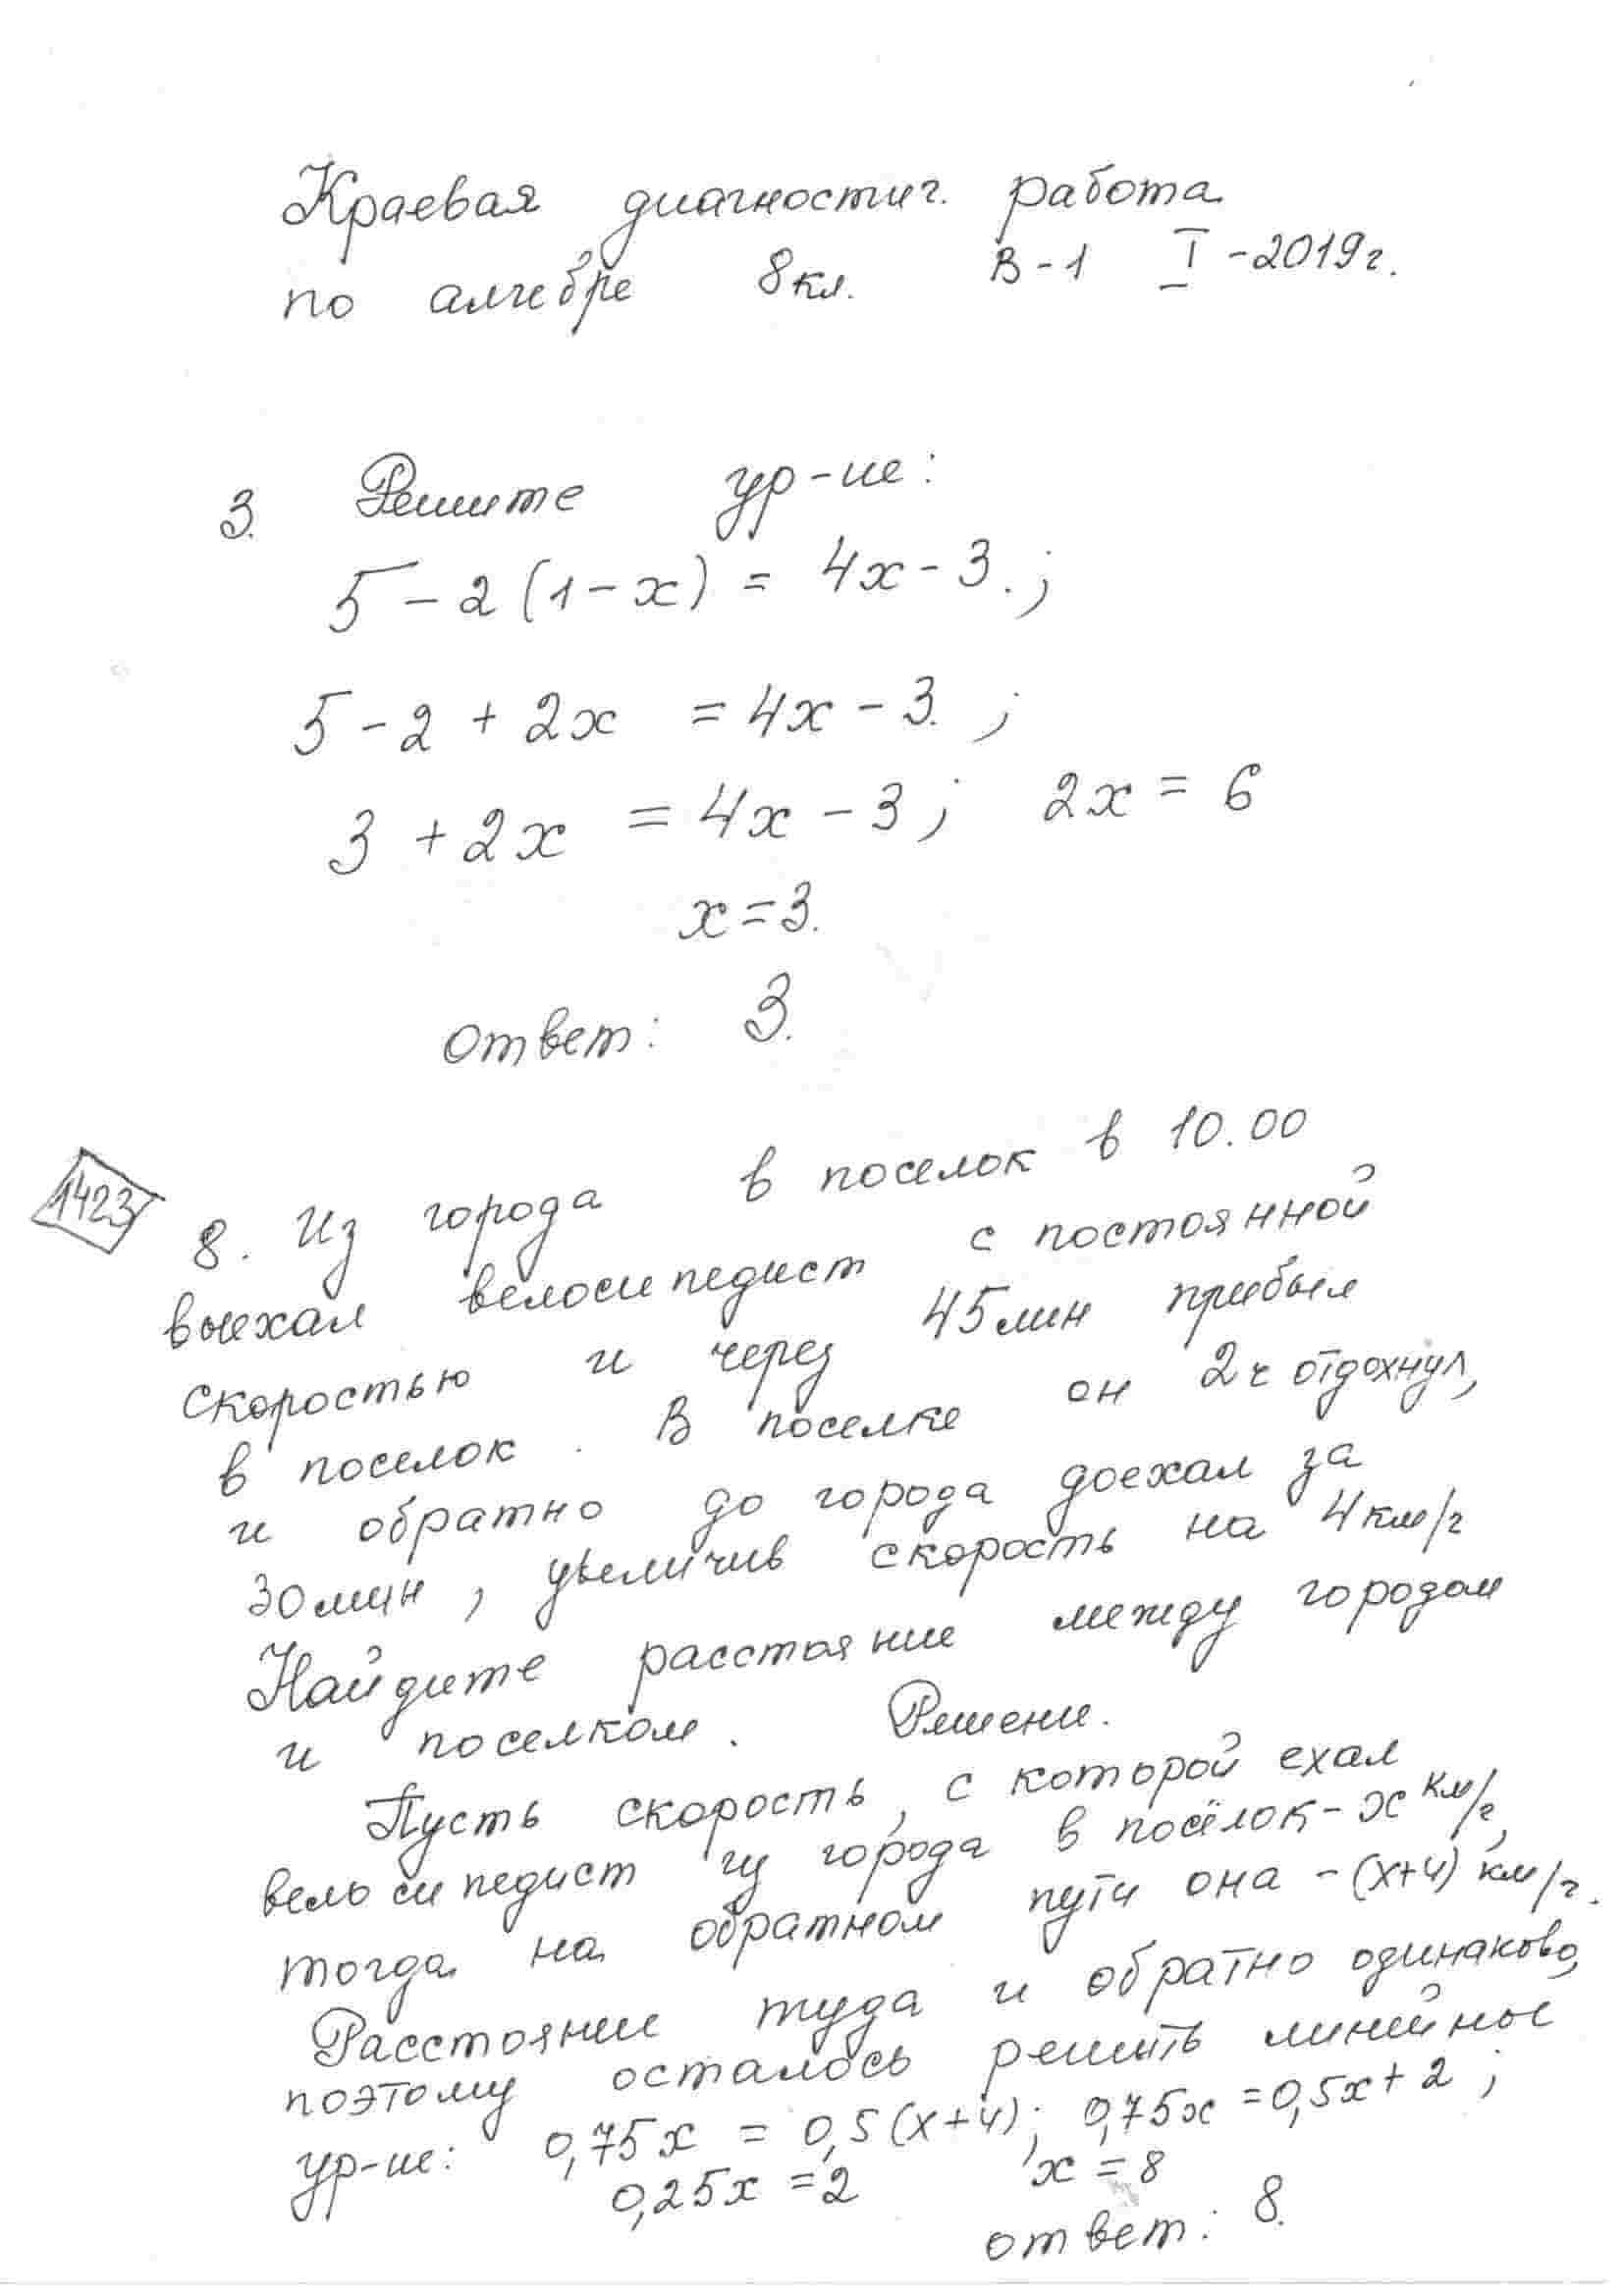 Краевая диагностич. работа
по алгебре 8кл. В-1 I-2019г.
3. Решите ур-ие:
5-2(1-x) = 4x-3.;
5-2+2x = 4x-3. ;
3+2x = 4x-3; 2x = 6
x=3.
Ответ: 3.
1423
8. Из города в поселок в 10.00
выехал велосипедист с постоянной
скоростью и через 45мин прибыл
в поселок. В поселке он 2ч отдохнул,
и обратно до города доехал за
30мин, увеличив скорость на 4км/ч
Найдите расстояние между городом
и поселком. Решени.
Пусть скорость, с которой ехал
велосипедист из города в посёлок-x км/ч,
тогда на обратном пути она -(x+4) км/ч.
Расстояние туда и обратно одинаково,
поэтому осталось решить линейное
ур-ие: 0,75x = 0,5(x+4); 0,75x =0,5x+2;
0,25x =2 x = 8
Ответ: 8.